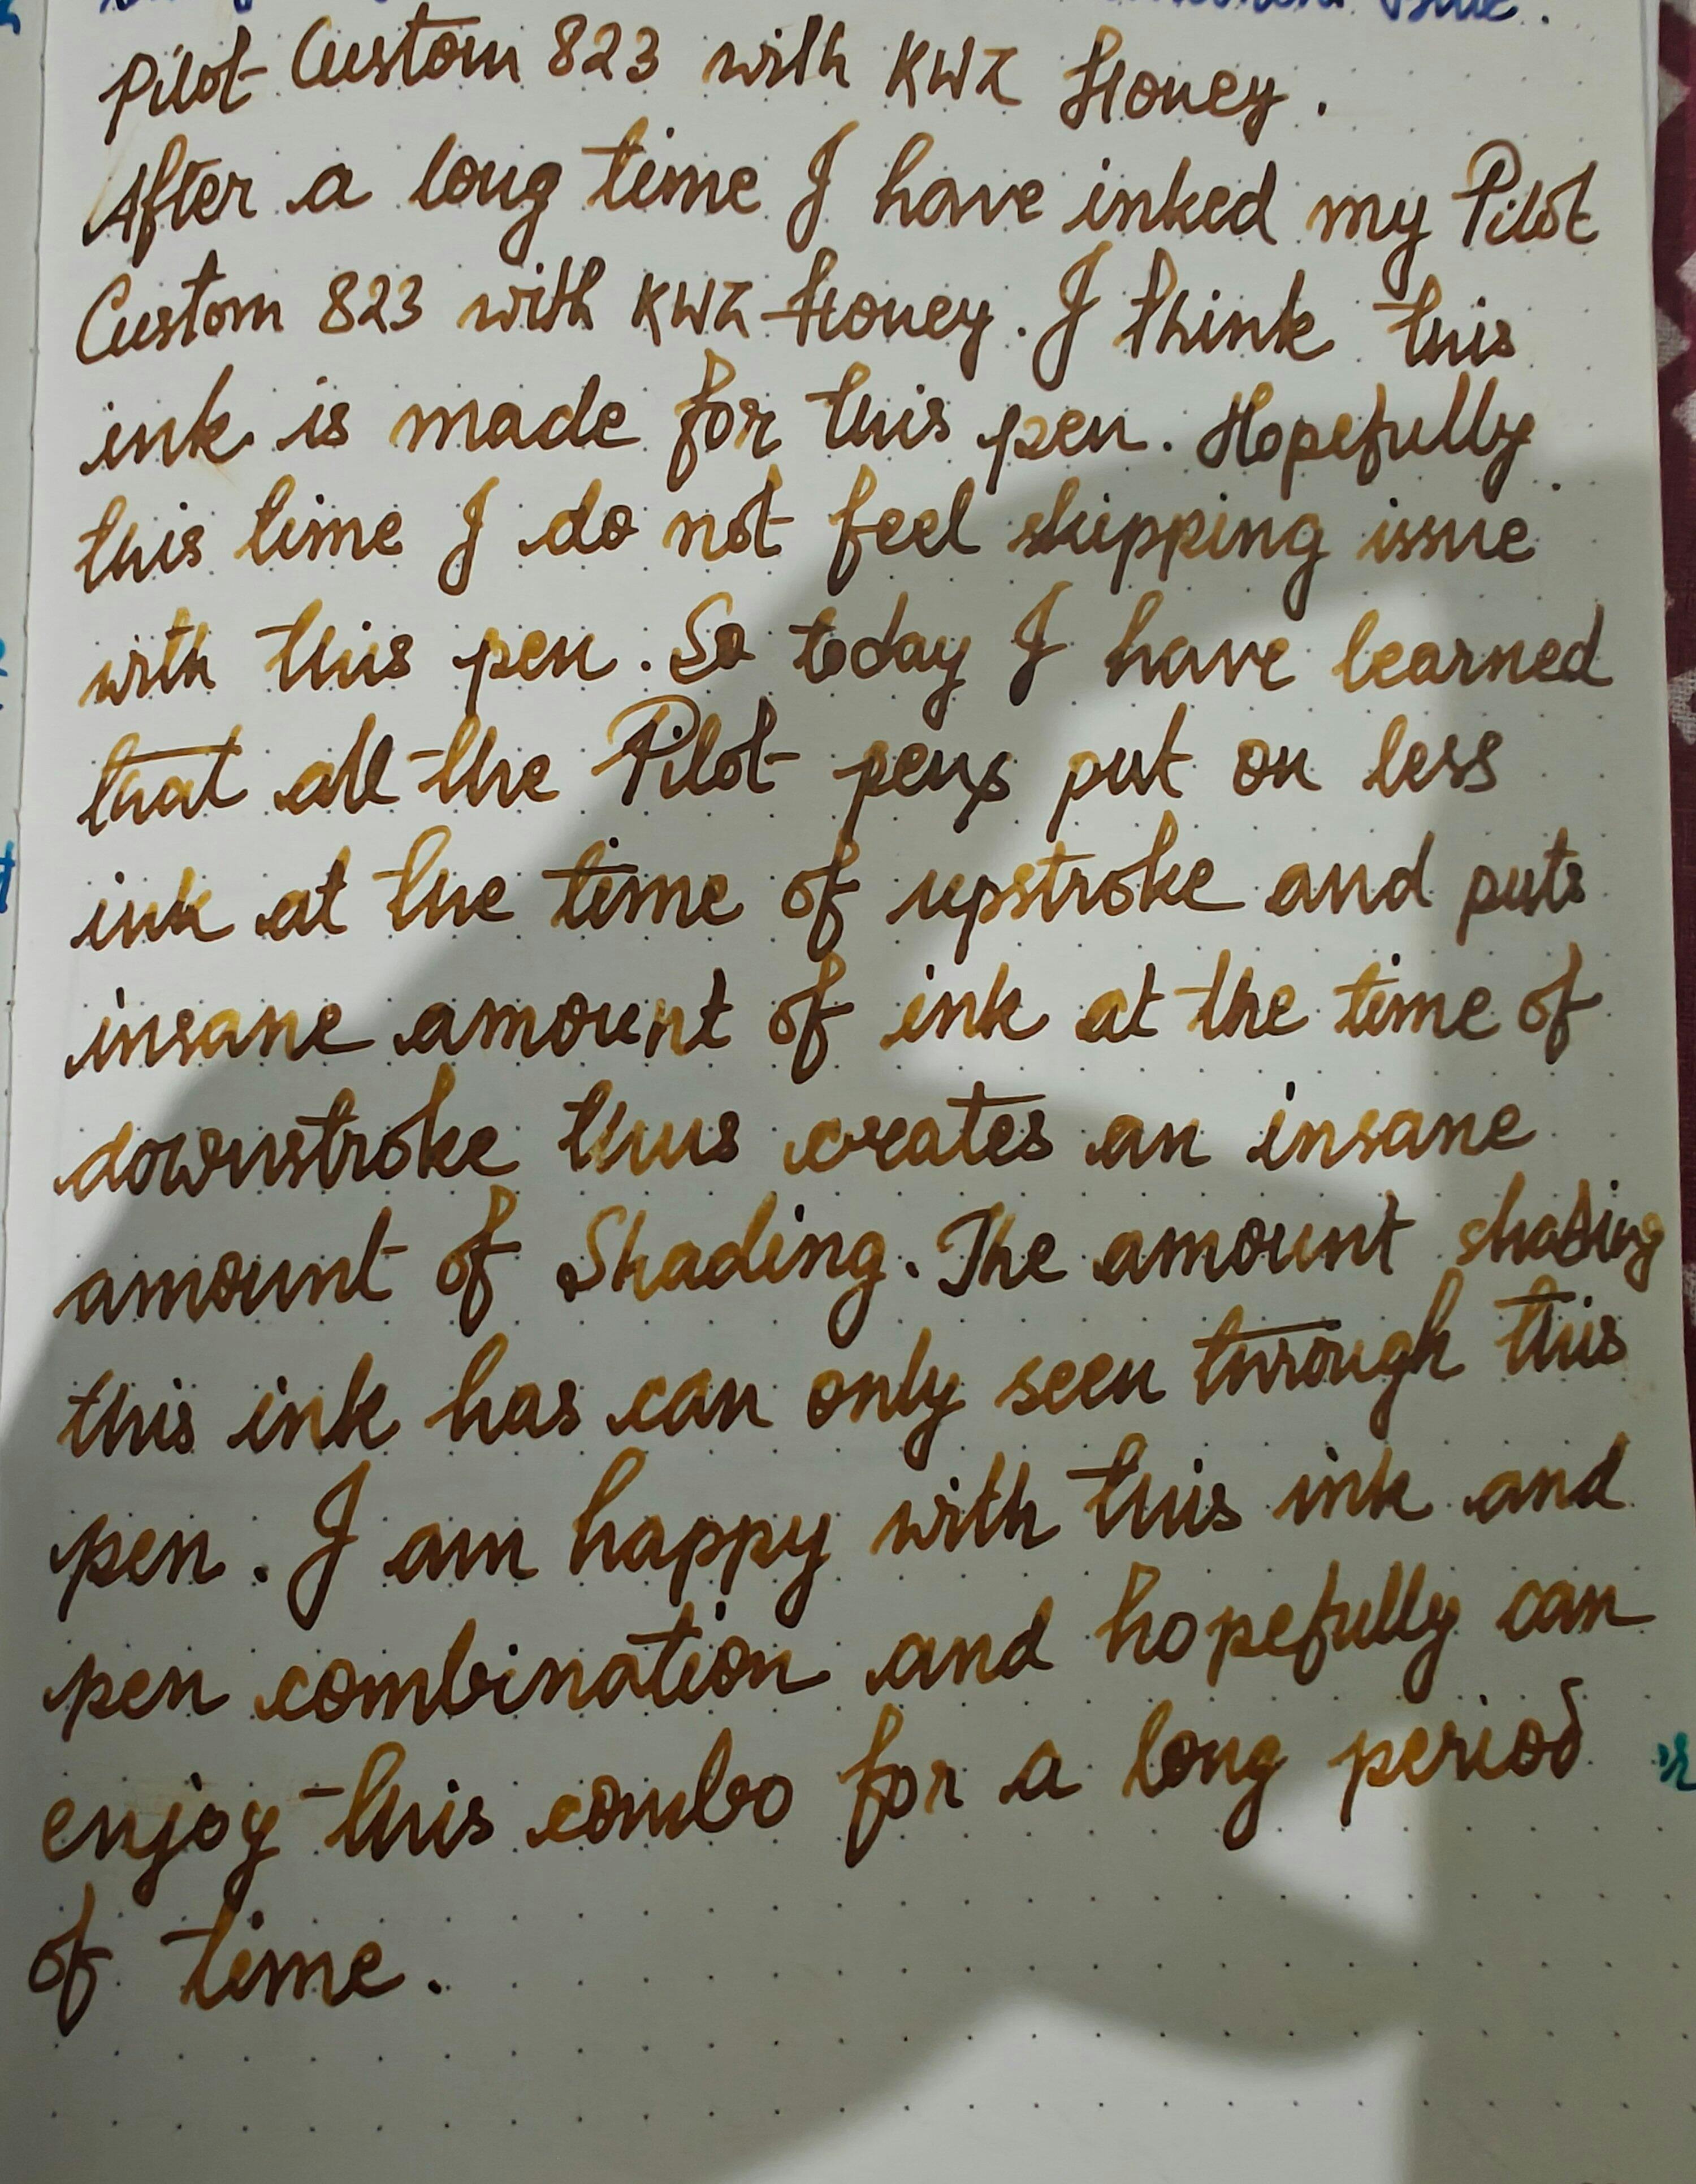 Blue.
Pilot Custom 823 with KWZ Honey.
After a long time I have inked my Pilot
Custom 823 with KWZ Honey. I think this
ink is made for this pen. Hopefully
this time I do not feel skipping issue
with this pen. So today I have learned
that all the Pilot pens put on less
ink at the time of upstroke and puts
insane amount of ink at the time of
downstroke thus creates an insane
amount of Shading. The amount shading
this ink has can only seen through this
pen. I am happy with this ink and
pen combination and hopefully can
enjoy this combo for a long period
of time.